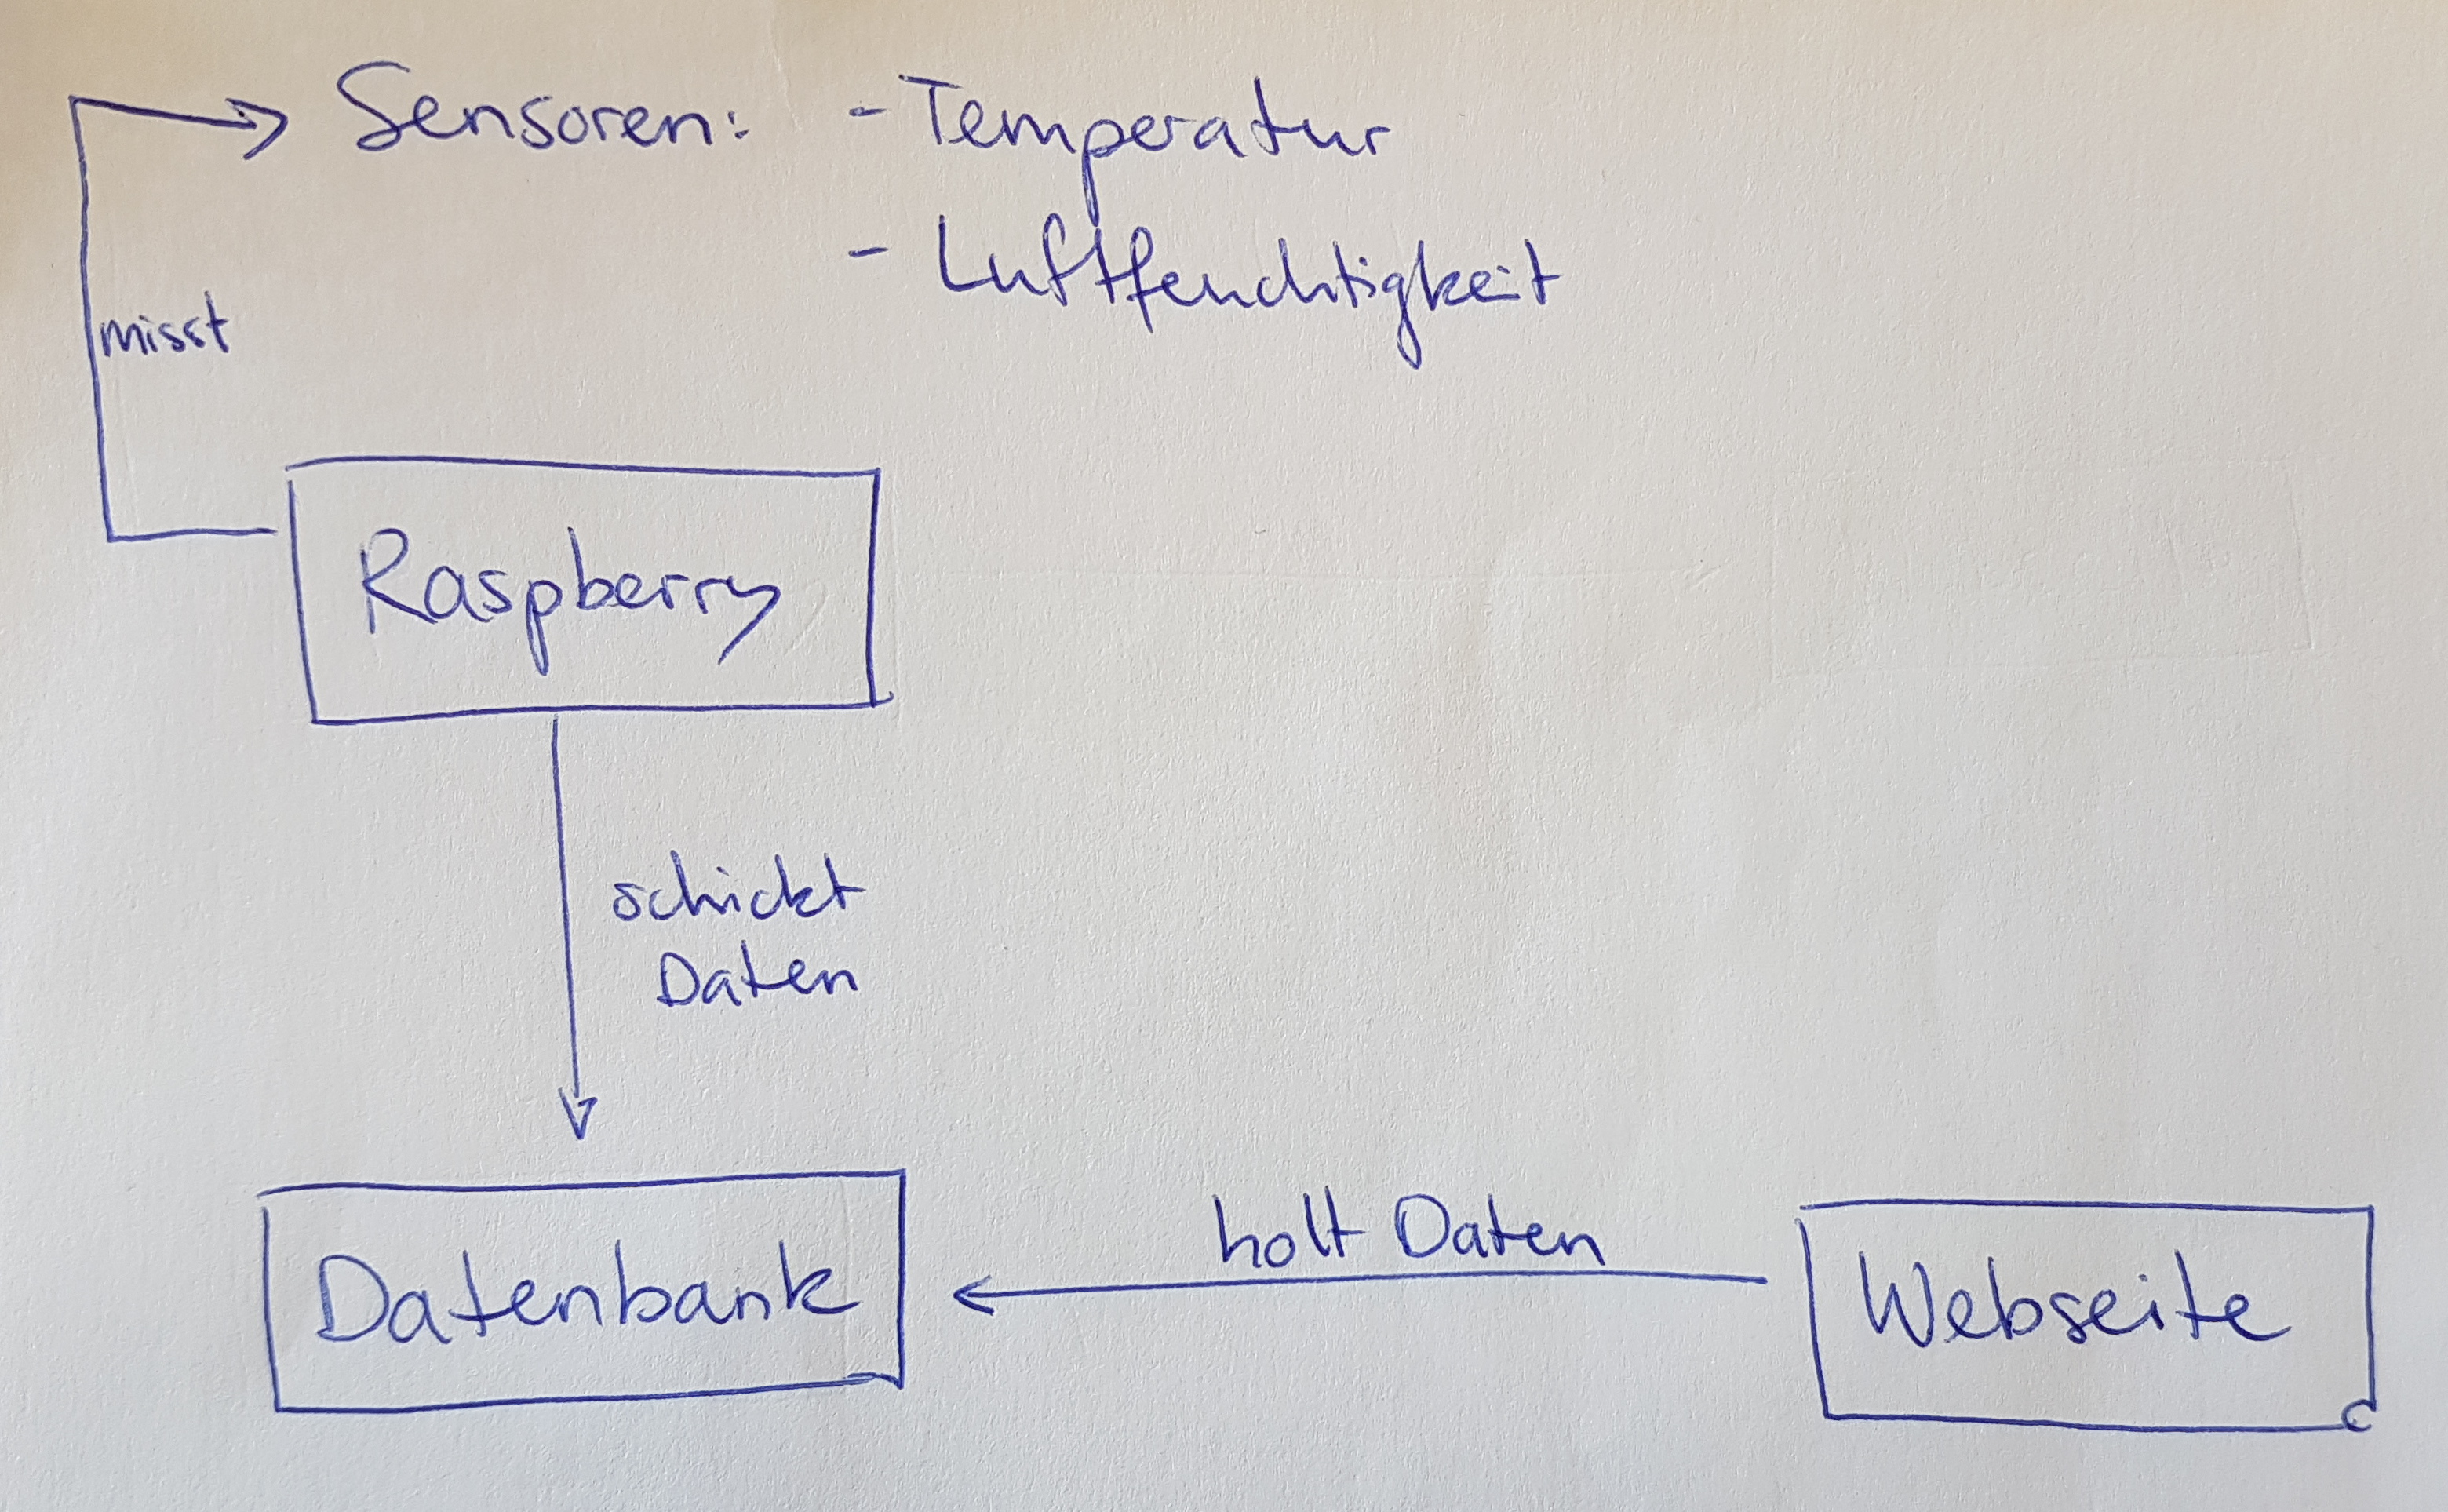 Sensoren: - Temperatur
- Luftfeuchtigkeit
misst
Raspberry
schickt
Daten
holt Daten
Datenbank
Webseite